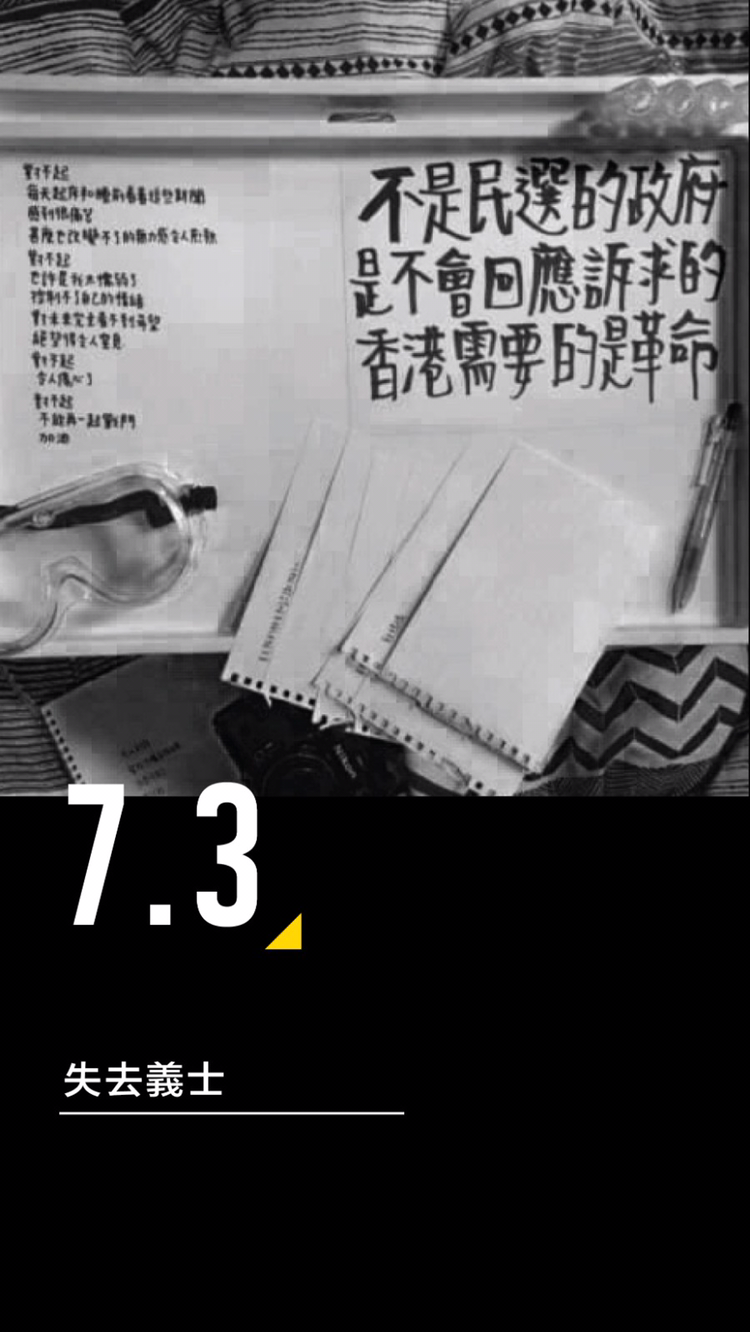 對不起
每天起床和睡前看着這些新聞
感到很痛苦
甚麼也改變不了的無力感令人煎熬
對不起
也許是我太懦弱了
控制不了自己的情緒
對未來完全看不到希望
絕望得令人窒息
對不起
令人傷心了
對不起
不能再一起戰鬥
加油
不是民選的政府
是不會回應訴求的
香港需要的是革命
7.3
失去義士